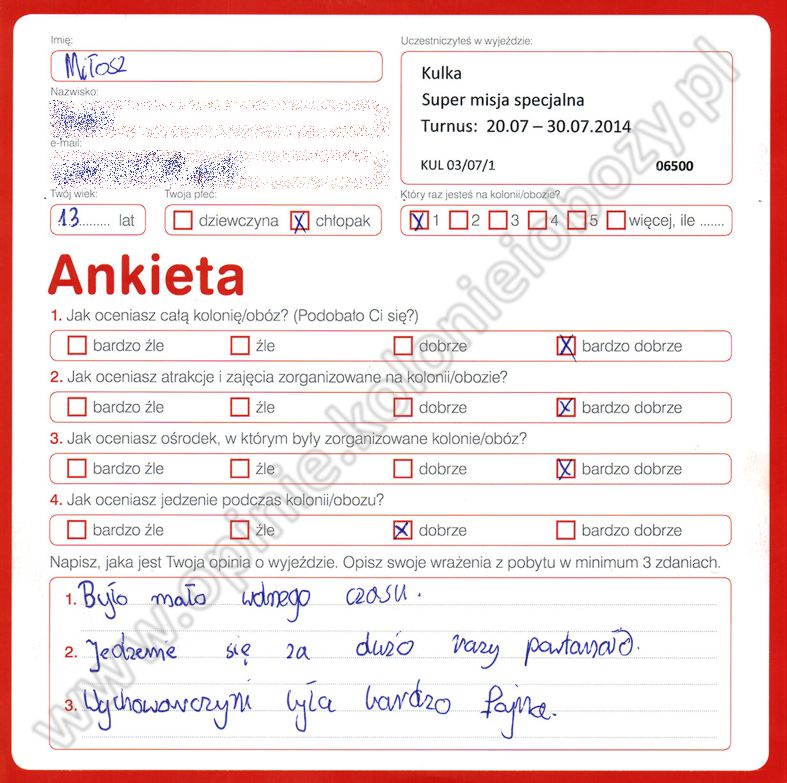 Imię:
Miłosz
Nazwisko:
e-mail:
Twój wiek:
13 lat
Twoja płeć:
dziewczyna X chłopak
Uczestniczyłeś w wyjeździe:
Kulka
Super misja specjalna
Turnus: 20.07 – 30.07.2014
KUL 03/07/1 06500
Który raz jesteś na kolonii/obozie?
X 1 2 3 4 5 więcej, ile .......
Ankieta
1. Jak oceniasz całą kolonię/obóz? (Podobało Ci się?)
bardzo źle źle dobrze X bardzo dobrze
2. Jak oceniasz atrakcje i zajęcia zorganizowane na kolonii/obozie?
bardzo źle źle dobrze X bardzo dobrze
3. Jak oceniasz ośrodek, w którym były zorganizowane kolonie/obóz?
bardzo źle źle dobrze X bardzo dobrze
4. Jak oceniasz jedzenie podczas kolonii/obozu?
bardzo źle źle X dobrze bardzo dobrze
Napisz, jaka jest Twoja opinia o wyjeździe. Opisz swoje wrażenia z pobytu w minimum 3 zdaniach.
1. Było mało wolnego czasu.
2. Jedzenie się za dużo razy powtarzało.
3. Wychowawczyni była bardzo fajna.
www.opinie.kolonieiobozy.pl